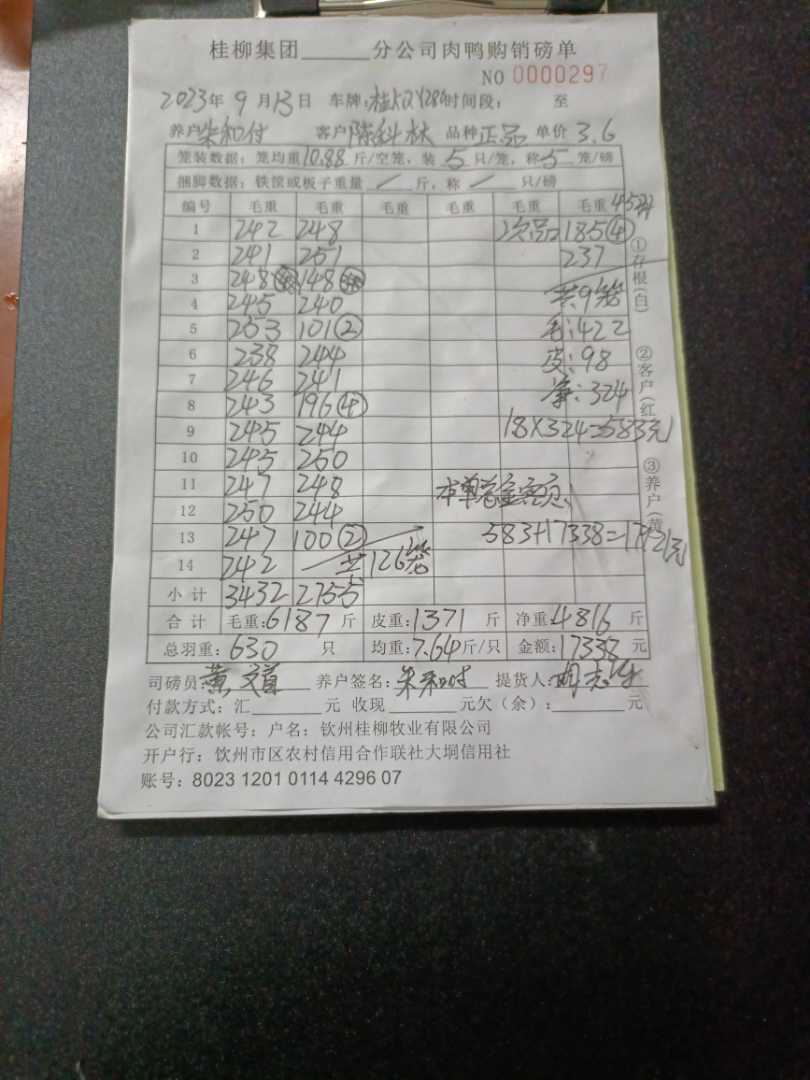 桂柳集团______分公司肉鸭购销磅单
NO 0000297
2023年 9 月 13 日 车牌: 时间段: 至
养户 朱和付 客户 陈科林 品种 正品 单价 3.6
笼装数据: 笼均重 10.88 斤/空笼, 装 5 只/笼, 称 5 笼/磅
捆脚数据: 铁馈或板子重量 / 斤, 称 / 只/磅
编号 毛重 毛重 毛重 毛重 毛重 毛重 45只
1 242 248 次品 185④
2 241 251 237
3 248 148 共9笼
4 245 240
5 253 101② 毛:422
6 238 244 皮:98
7 246 241 净:324
8 243 196④
9 245 244 18X324=583元
10 245 250
11 247 248 本单总金额
12 250 244
13 247 100② 583+17338=
14 242 共126笼
小计 3432 2755
合计 毛重:6187 斤 皮重:1371 斤 净重:4816 斤
总羽重: 630 只 均重:7.64斤/只 金额:17338 元
司磅员: 养户签名: 提货人:
付款方式: 汇______元 收现______元欠(余):______元
公司汇款帐号: 户名: 钦州桂柳牧业有限公司
开户行: 钦州市区农村信用合作联社大垌信用社
账号: 8023 1201 0114 4296 07
①存根(白)
②客户(红
③养户(黄